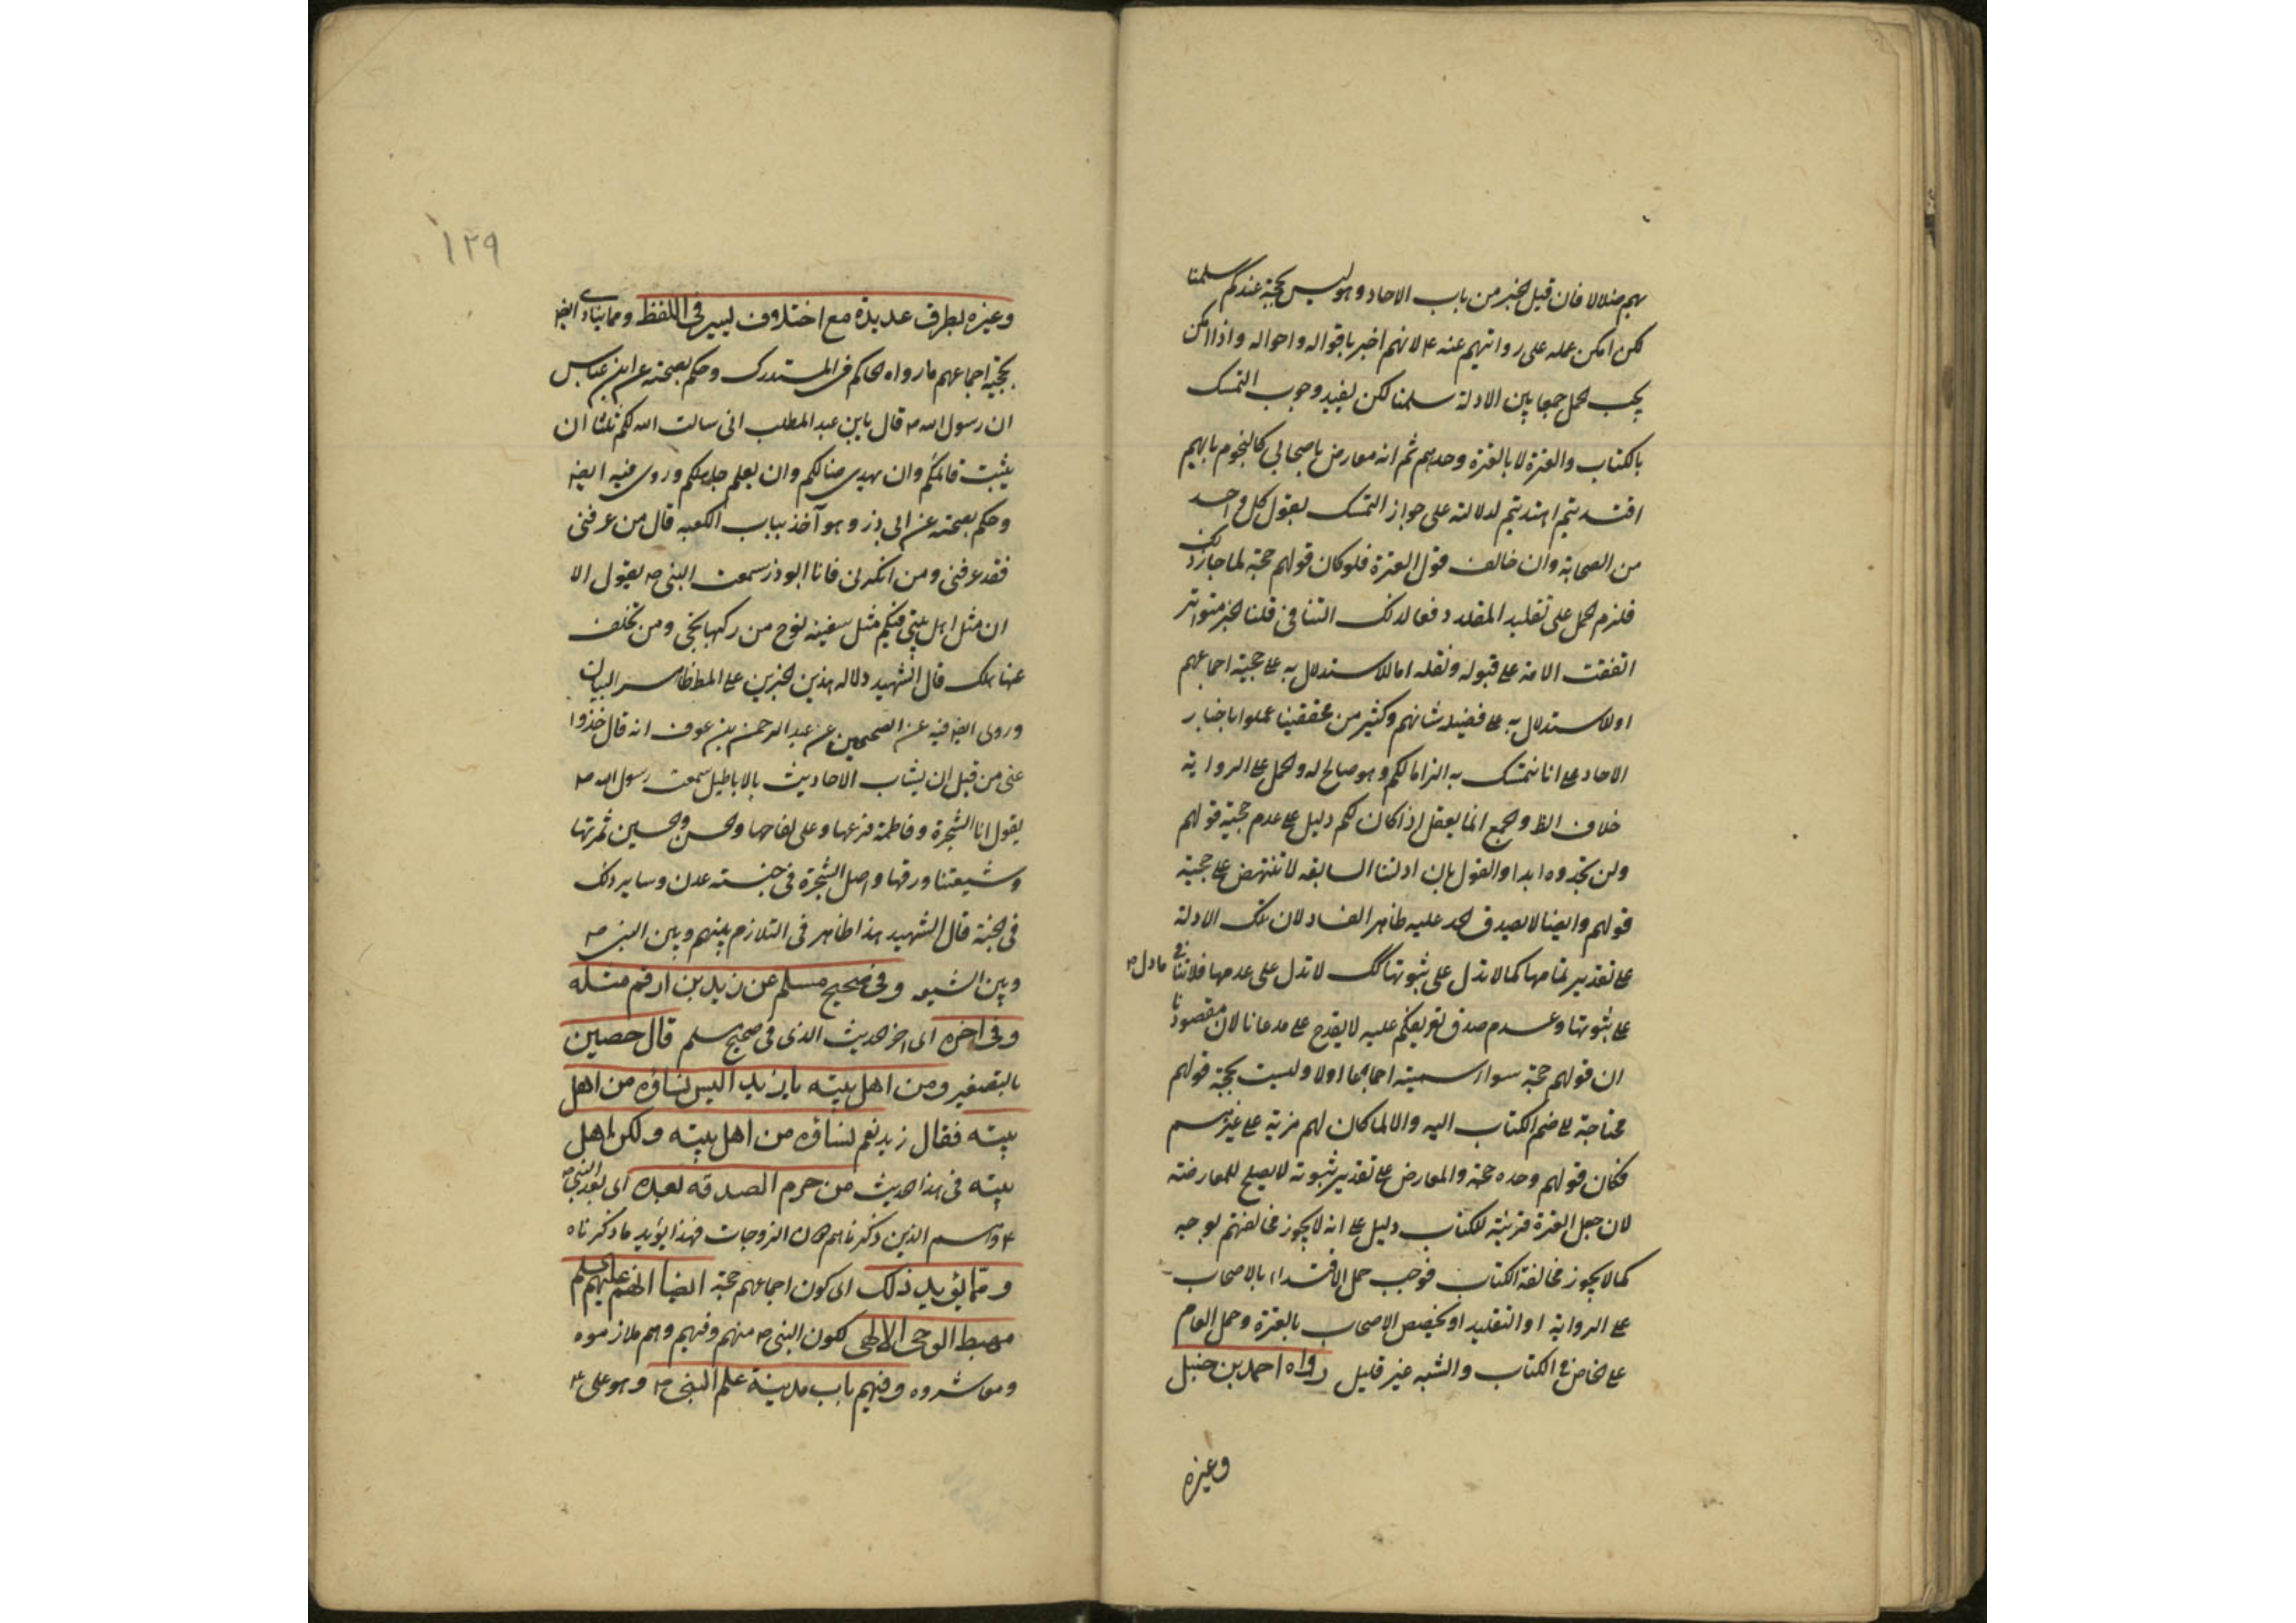 بهم ضلالا فان قيل الخبر من باب الاحاد وهو ليس بحجة عندكم سلمنا
لكن امكن حمله على روايتهم عنه ع لانهم اخبر باقواله واحواله واذا امكن
يجب الحمل جمعا بين الادلة سلمنا لكن يفيد وجوب التمسك
بالكتاب والعترة لا بالعترة وحدهم ثم انه معارض باصحابي كالنجوم بايهم
اقتديتم اهتديتم لدلالته على جواز التمسك بقول كل واحد
من الصحابة وان خالف قول العترة فلو كان قولهم حجة لما جاز ذلك
فلزم الحمل على تقليد المقلد دفعا لذلك التنافي قلنا الخبر متواتر
اتفقت الامة على قبوله ونقله اما للاستدلال به على حجية اجماعهم
او للاستدلال به على فضيلة شانهم وكثير من محققينا عملوا باخبار
الاحاد على انا نتمسك به الزاما لكم وهو صالح له والحمل على الرواية
خلاف الظ والجمع انما يعقل اذا كان لكم دليل على عدم حجية قولهم
ولن تجدوه ابدا والقول بان ادلتنا السابقه لا تنتهض على حجية
قولهم وايضا لا يصدق الحد عليه ظاهر الفساد لان تلك الادلة
على تقدير تمامها كما لا تدل على ثبوتها كك لا تدل على عدمها فلا تنافي مادل
على ثبوتها وعدم صدق تعريفكم عليه لا يقدح على مدعانا لان مقصودنا
ان قولهم حجة سواء سميته اجماعا اولا وليست بحجية قولهم
محتاجة على ضم الكتاب اليه والا لما كان لهم مزية على غيرهم
فكان قولهم وحده حجة والمعارض على تقدير ثبوته لا يصلح للمعارضة
لان جعل العترة قرينة للكتاب دليل على انه لا يجوز مخالفتهم بوجه
كما لا يجوز مخالفة الكتاب فوجب حمل الاقتداء بالاصحاب
على الرواية او التقليد او تخصيص الاصحاب بالعترة وحمل العام
على الخاص في الكتاب والسنة غير قليل رواه احمد بن حنبل
وغيره
١٢٩
وغيره بطرق عديدة مع اختلاف يسير في اللفظ ومما ينادي ايضا
بحجية اجماعهم ما رواه الحاكم في المستدرك وحكم بصحته عن ابن عباس
ان رسول الله ص قال يا بني عبد المطلب اني سالت الله لكم ثلثا ان
يثبت قائمكم وان يهدي ضالكم وان يعلم جاهلكم وروى فيه ايضا
وحكم بصحته عن ابي ذر وهو آخذ بباب الكعبه قال من عرفني
فقد عرفني ومن انكرني فانا ابو ذر سمعت النبي ص يقول الا
ان مثل اهل بيتي فيكم مثل سفينة نوح من ركبها نجى ومن تخلف
عنها هلك قال الشهيد دلالة هذين الخبرين على المط ظاهر البيان
وروى ايضا فيه عن الصحيحين عن عبد الرحمن بن عوف انه قال خذوا
عني من قبل ان يشاب الاحاديث بالاباطيل سمعت رسول الله ص
يقول انا الشجرة وفاطمة فرعها وعلي لقاحها والحسن والحسين ثمرتها
وشيعتنا ورقها واصل الشجرة في جنة عدن وساير ذلك
في الجنة قال الشهيد هذا ظاهر في التلازم بينهم وبين النبي ص
وبين الشيعه وفي صحيح مسلم عن زيد بن ارقم مثله
وفي اخره الى اخر الحديث الذي في صحيح مسلم قال حصين
بالتصغير ومن اهل بيته يا زيد اليس نساؤه من اهل
بيته فقال زيد نعم نساؤه من اهل بيته ولكن اهل
بيته في هذا الحديث من حرم الصدقه بعده اي بعد النبي ص
وهم الذين ذكرناهم لان الزوجات فهذا يؤيد ما ذكرناه
ومما يؤيد ذلك اي كون اجماعهم حجة ايضا انهم عليهم السلم
مهبط الوحي الالهي لكون النبي ص منهم وفيهم وهم ملازموه
ومعاشروه وفيهم باب مدينة علم النبي ص وهو علي ع